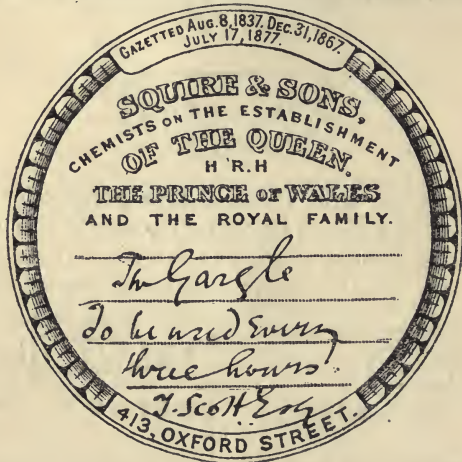 GAZETTED AUG. 8, 1837. DEC. 31, 1867.
JULY 17, 1877.
SQUIRE & SONS,
CHEMISTS ON THE ESTABLISHMENT
OF THE QUEEN.
H.R.H
THE PRINCE OF WALES
AND THE ROYAL FAMILY.
The Gargle
To be used every
three hours
T. Scott Esq
413, OXFORD STREET.